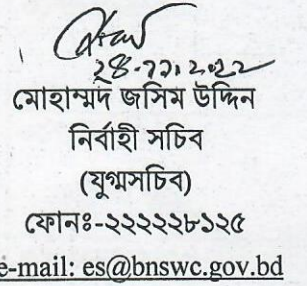 ২৪.১১.২০২২
মোহাম্মদ জসিম উদ্দিন
নির্বাহী সচিব
(যুগ্মসচিব)
ফোনঃ-২২২২২৮১২৫
e-mail: es@bnswc.gov.bd